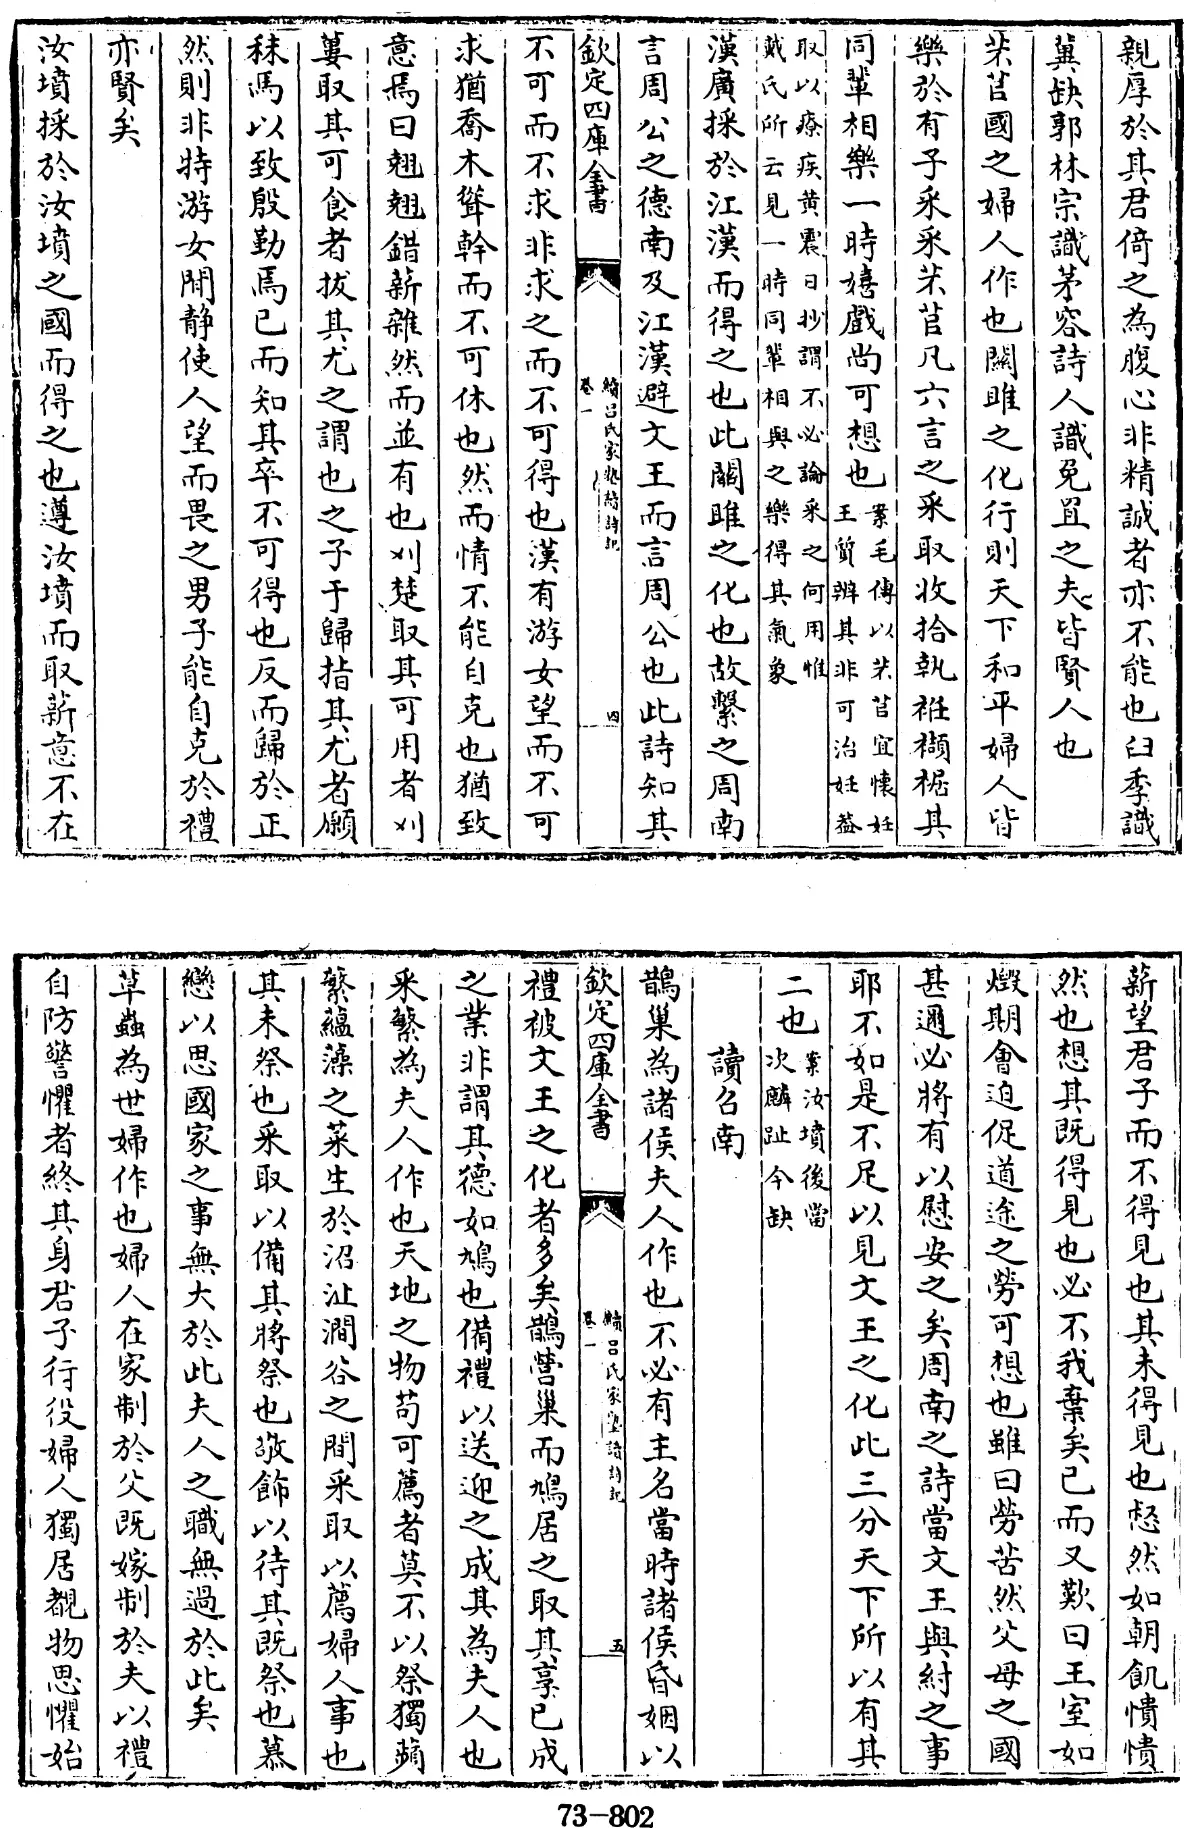 親厚於其君倚之為腹心非精誠者亦不能也臼季識
冀缺郭林宗識茅容詩人識兔罝之夫皆賢人也
芣苢國之婦人作也關雎之化行則天下和平婦人皆
樂於有子采采芣苢凡六言之采取收拾執袵襭椐其
同輩相樂一時嬉戲尚可想也案毛傳以芣苢宜懷妊
王質辨其非可治妊葢
取以療疾黄震日抄謂不必論采之何用惟
戴氏所云見一時同輩相與之樂得其氣象
漢廣採於江漢而得之也此關雎之化也故繫之周南
言周公之德南及江漢避文王而言周公也此詩知其
欽定四庫全書
續呂氏家塾讀詩記
卷一
四
不可而不求非求之而不可得也漢有游女望而不可
求猶喬木聳幹而不可休也然而情不能自克也猶致
意焉曰翹翹錯薪雜然而並有也刈楚取其可用者刈
蔞取其可食者拔其尤之謂也之子于歸指其尤者願
秣馬以致殷勤焉已而知其卒不可得也反而歸於正
然則非特游女閒静使人望而畏之男子能自克於禮
亦賢矣
汝墳採於汝墳之國而得之也遵汝墳而取薪意不在
薪望君子而不得見也其未得見也惄然如朝飢憒憒
然也想其既得見也必不我棄矣已而又歎曰王室如
燬期會迫促道途之勞可想也雖曰勞苦然父母之國
甚邇必將有以慰安之矣周南之詩當文王與紂之事
耶不如是不足以見文王之化此三分天下所以有其
二也案汝墳後當
次麟趾今缺
讀召南
鵲巢為諸侯夫人作也不必有主名當時諸侯昏姻以
欽定四庫全書
續呂氏家塾讀詩記
卷一
五
禮被文王之化者多矣鵲營巢而鳩居之取其享已成
之業非謂其德如鳩也備禮以送迎之成其為夫人也
采蘩為夫人作也天地之物苟可薦者莫不以祭獨蘋
蘩蘊藻之菜生於沼沚澗谷之間采取以薦婦人事也
其未祭也采取以備其將祭也敬飾以待其既祭也慕
戀以思國家之事無大於此夫人之職無過於此矣
草蟲為世婦作也婦人在家制於父既嫁制於夫以禮
自防警懼者終其身君子行役婦人獨居覩物思懼始
73-802